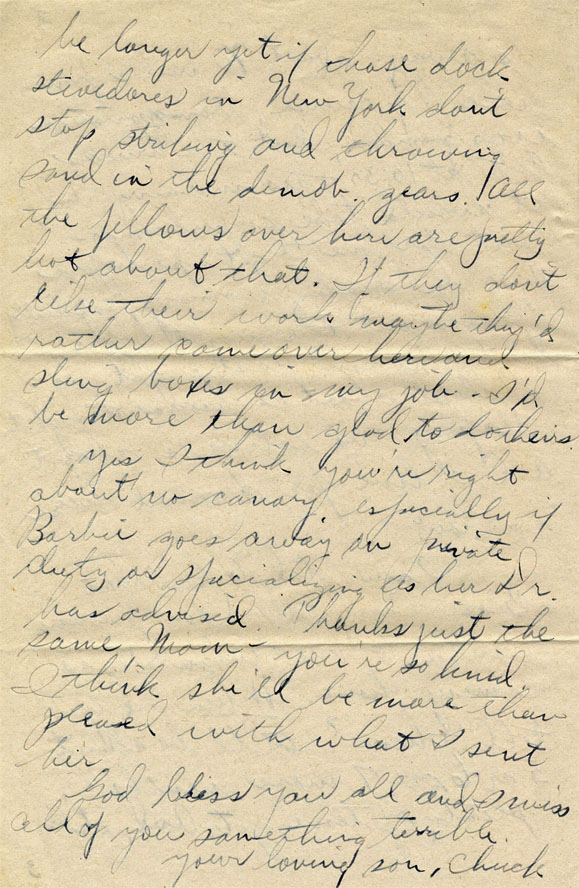 be longer yet if those dock
stevedores in New York don't
stop striking and throwing
sand in the demob. gears. All
the fellows over here are pretty
hot about that. If they don't
like their work maybe they'd
rather come over here and
sling boxes in my job - I'd
be more than glad to do theirs.
Yes I think you're right
about no canary especially if
Barbie goes away on private
duty or specializing as her Dr.
has advised. Thanks just the
same Mom - you're so kind.
I think she'll be more than
pleased with what I sent
her.
God bless you all and I miss
all of you something terrible.
your loving son, Chuck